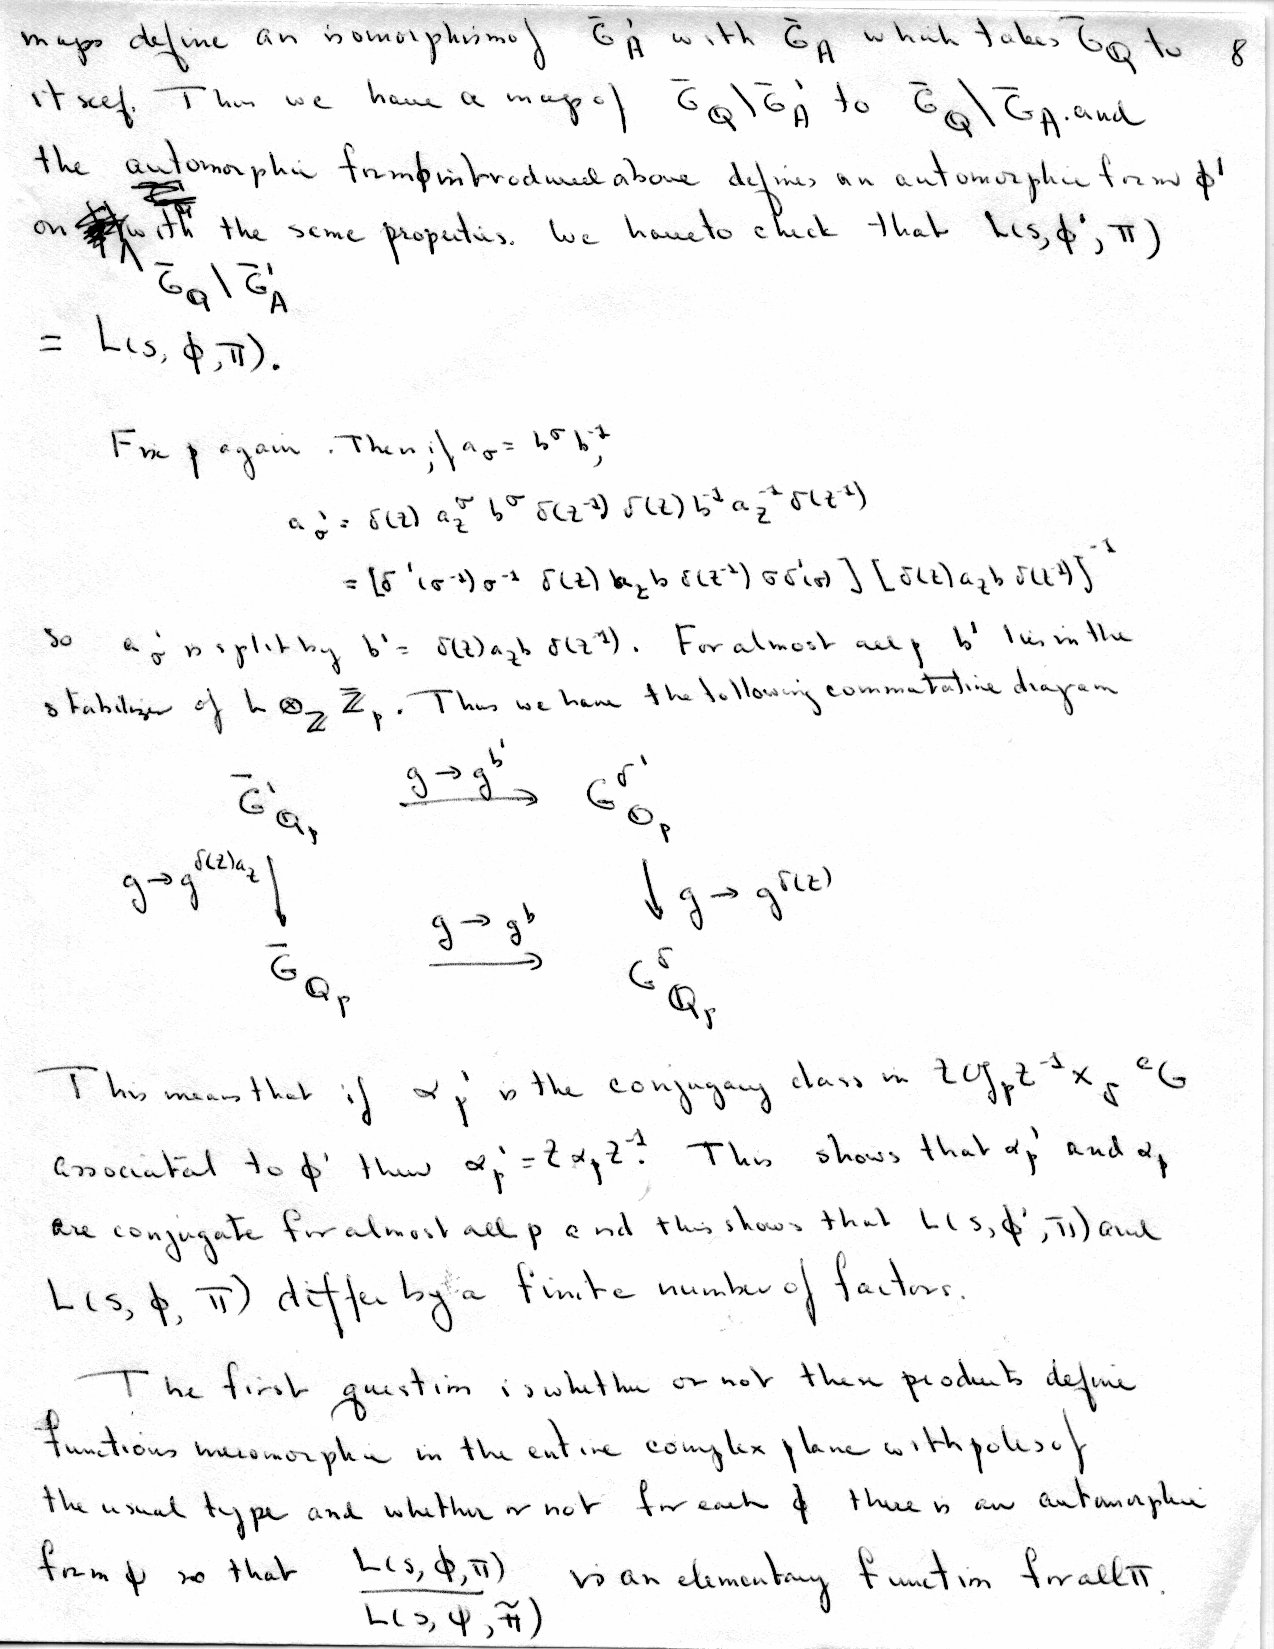 maps define an isomorphism of Ḡ'_A with Ḡ_A which takes Ḡ_Q to 8
itself. Thus we have a map of Ḡ_Q\Ḡ'_A to Ḡ_Q\Ḡ_A. and
the automorphic form φ introduced above defines an automorphic form φ'
on with the same properties. We have to check that L(s, φ', π)
Ḡ_Q\Ḡ'_A
= L(s, φ, π).
Fix p again. Then, if a_σ = b^σ b^{-1},
a'_σ = δ(z) a_z^σ b^σ δ(z^{-1}) δ(z) b^{-1} a_z^{-1} δ(z^{-1})
= [δ'(σ^{-1}) σ^{-1} δ(z) a_z b δ(z^{-1}) σ δ'(σ)] [δ(z) a_z b δ(z^{-1})]^{-1}
so a'_σ is split by b' = δ(z) a_z b δ(z^{-1}). For almost all p b' lies in the
stabilizer of L ⊗_Z Z̄_p. Thus we have the following commutative diagram
Ḡ'_{Q_p} g → g^{b'} G^{δ'}_{Q_p}
g → g^{δ(z)a_z} ↓ ↓ g → g^{δ(z)}
g → g^b
Ḡ_{Q_p} G^δ_{Q_p}
This means that if α'_p is the conjugacy class in z𝔤_p z^{-1} ×_δ ^cG
associated to φ' then α'_p = z α_p z^{-1}. This shows that α'_p and α_p
are conjugate for almost all p and this shows that L(s, φ', π) and
L(s, φ, π) differ by a finite number of factors.
The first question is whether or not these products define
functions meromorphic in the entire complex plane with poles of
the usual type and whether or not for each φ there is an automorphic
form ψ so that L(s, φ, π) / L(s, ψ, π̃) is an elementary function for all π.